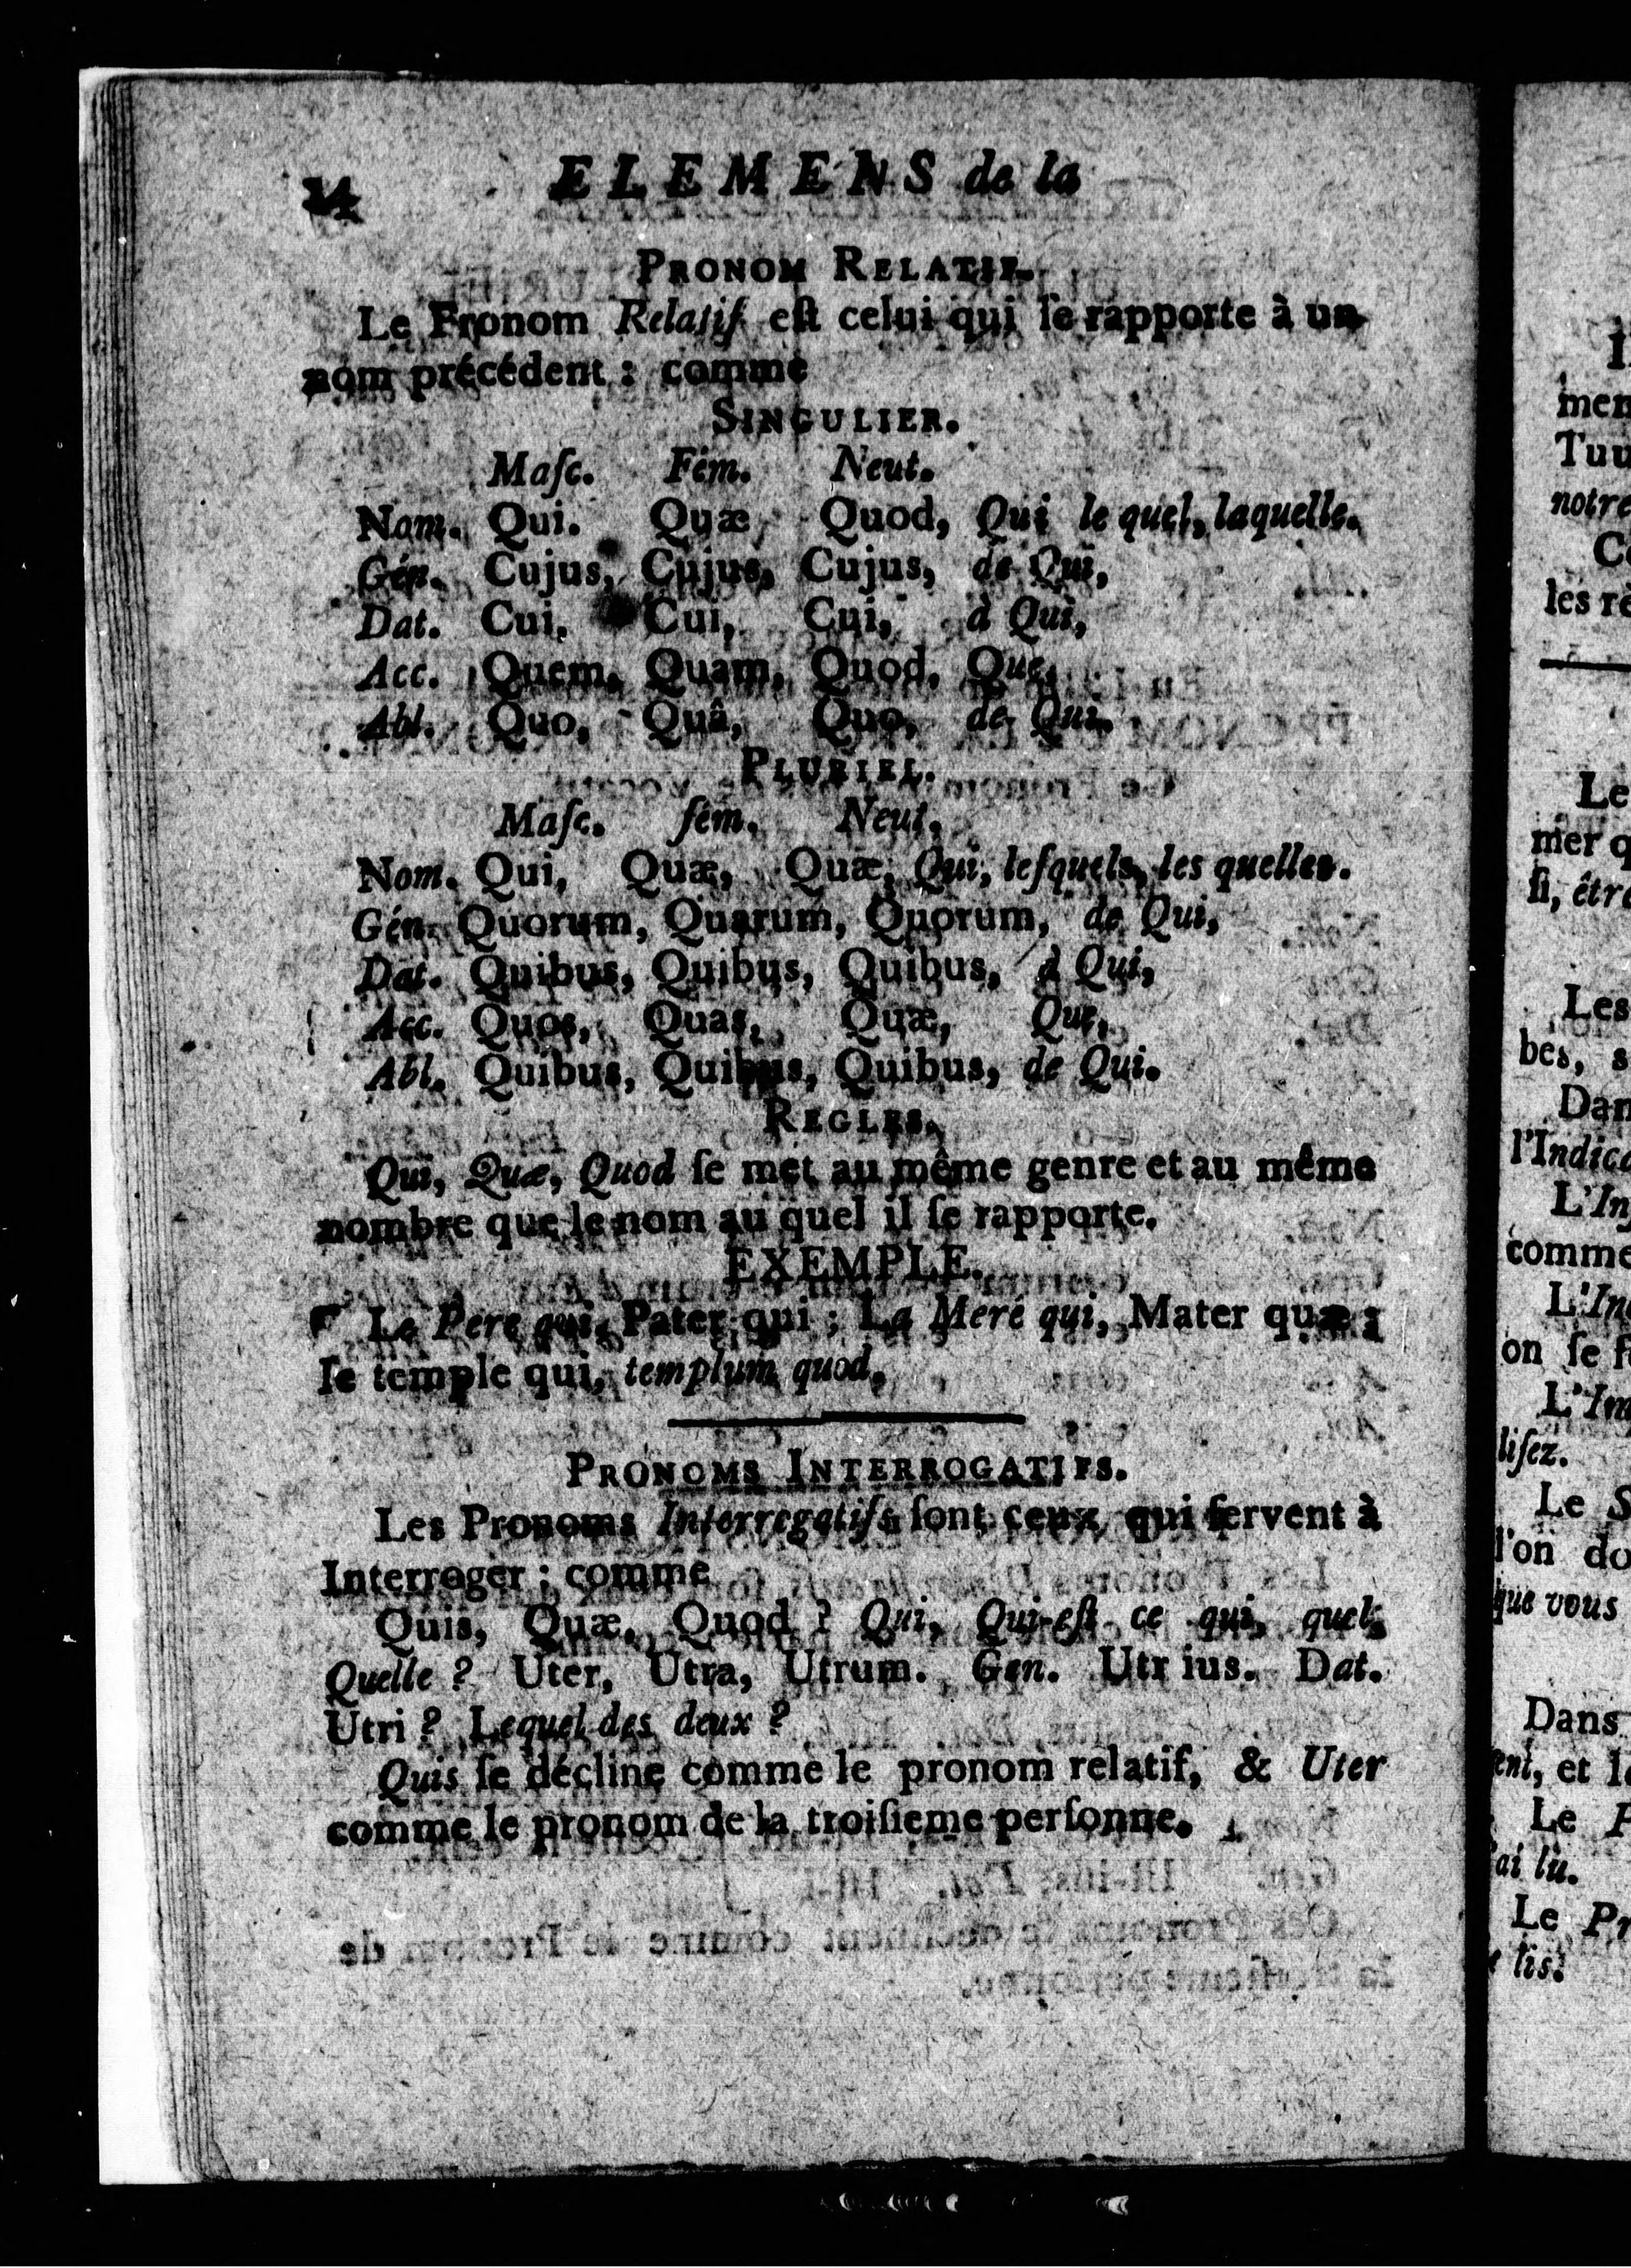 24 ELEMENS de la
PRONOM RELATIF.
Le Pronom Relatif eſt celui qui ſe rapporte à un
nom précédent : comme
SINGULIER.
Maſc. Fém. Neut.
Nom. Qui. Quæ, Quod, Qui le quel, laquelle.
Gén. Cujus, Cujus, Cujus, de Qui,
Dat. Cui, Cui, Cui, à Qui,
Acc. Quem, Quam, Quod, Que,
Abl. Quo, Quâ, Quo, de Qui.
PLURIEL.
Maſc. fém. Neut.
Nom. Qui, Quæ, Quæ, Qui, leſquels, les quelles.
Gén. Quorum, Quarum, Quorum, de Qui,
Dat. Quibus, Quibus, Quibus, à Qui,
Acc. Quos, Quas, Quæ, Que,
Abl. Quibus, Quibus, Quibus, de Qui.
REGLES.
Qui, Quæ, Quod ſe met au même genre et au même
nombre que le nom au quel il ſe rapporte.
EXEMPLE.
☛ Le Pere qui, Pater qui ; La Meré qui, Mater quæ ;
le temple qui, templum quod.
PRONOMS INTERROGATIFS.
Les Pronoms Interrogatifs ſont ceux qui ſervent à
Interroger ; comme
Quis, Quæ, Quod ? Qui, Qui-eſt ce qui, quel,
Quelle ? Uter, Utra, Utrum. Gen. Utr ius. Dat.
Utri ? Lequel des deux ?
Quis ſe décline comme le pronom relatif, & Uter
comme le pronom de la troiſieme perſonne.
men
Tuu
notre
les ré
Le
mer q
ſi, être
Les
bes, s
Dan
l'Indica
L'Inf
comme
L'Ind
on ſe ſ
L'Im
liſez.
Le S
l'on do
que vous
Dans
ent, et l
Le P
'ai lu.
Le Pr
lis.